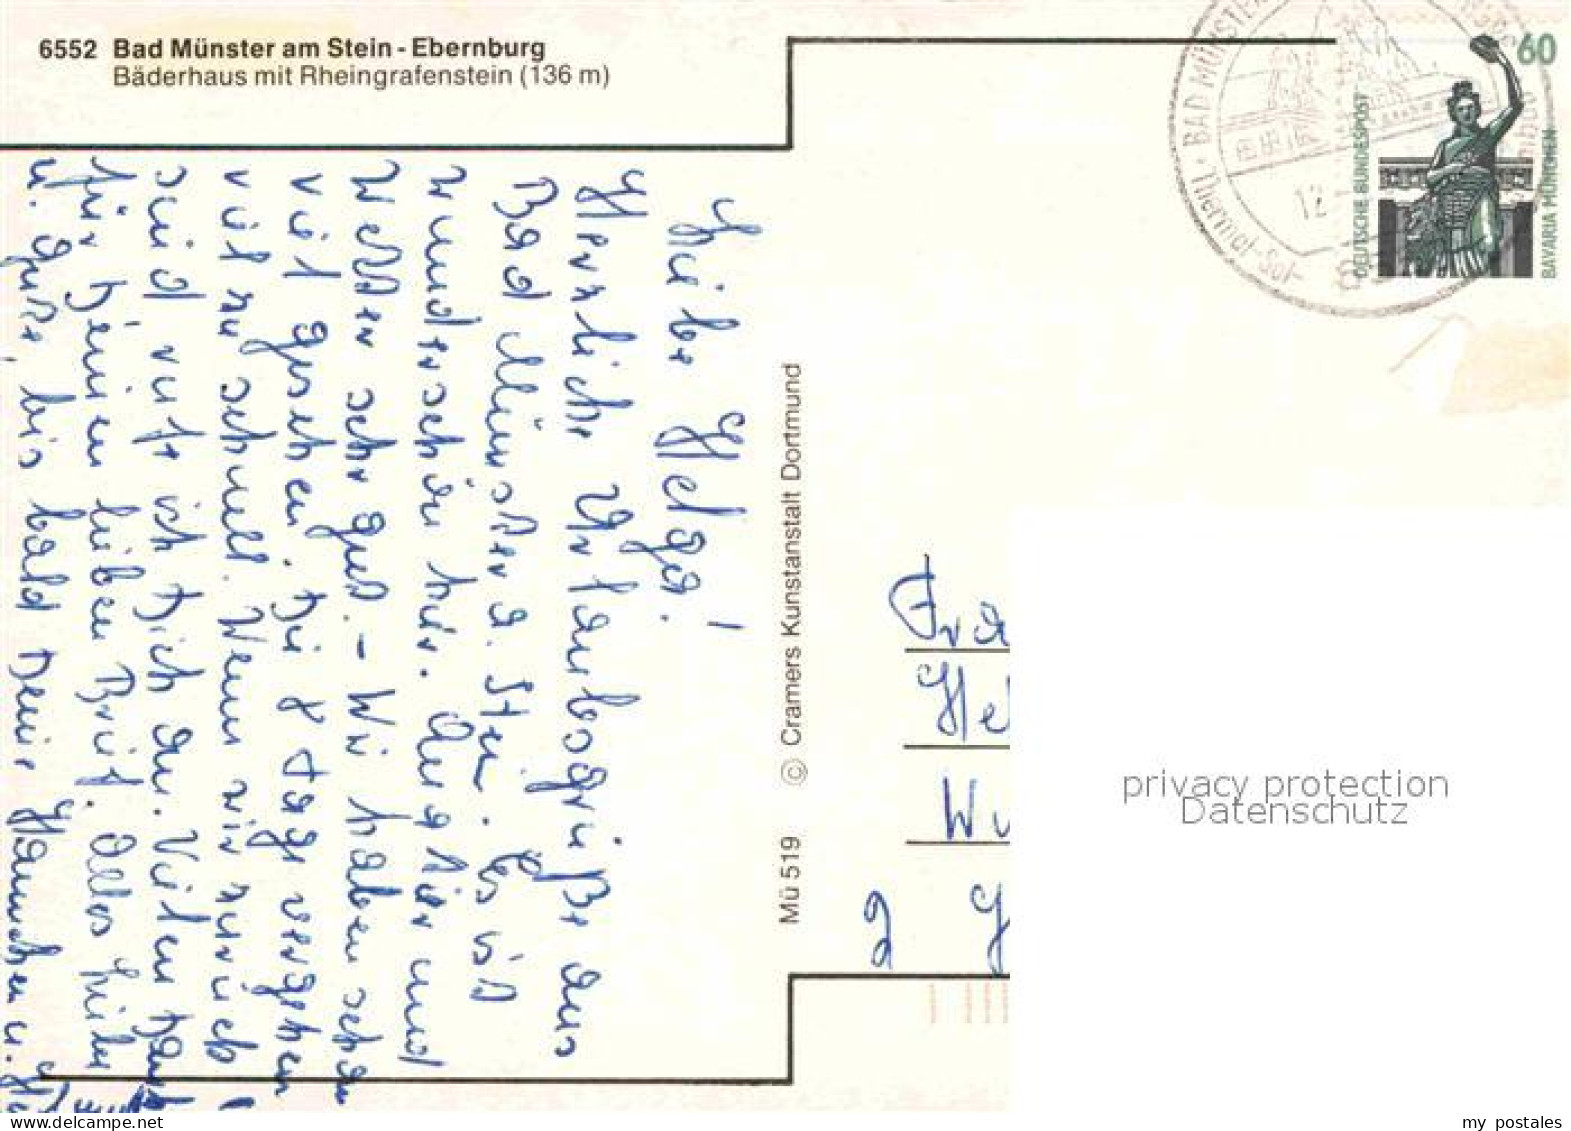 6552 Bad Münster am Stein - Ebernburg
Bäderhaus mit Rheingrafenstein (136 m)
60
DEUTSCHE BUNDESPOST
BAVARIA MÜNCHEN
BAD MÜNSTER
Thermal-Sol-
12
Liebe Helga!
Herzliche Urlaubsgrüße aus
Bad Münster a. Stein. Es ist
wunderschön hier. Quartier und
Wetter sehr gut. - Wir haben schon
viel gesehen. Die 8 Tage vergehen
viel zu schnell. Wenn wir zurück
sind rufe ich Dich an. Vielen Dank
für Deinen lieben Brief. Alles Liebe
u. Gute, bis bald Deine Hannchen u.
© Cramers Kunstanstalt Dortmund
Mü 519
Fra
Hel
W
2 G
privacy protection
Datenschutz
delcampe.net
my_postales